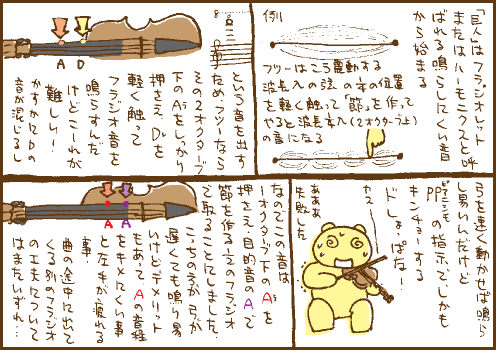 「巨人」はフラジオレット
またはハーモニクスと呼
ばれる鳴らしにくい音
から始まる
例
フツーはこう震動する
波長入の弦の¼の位置
を軽く触って「節」を作って
やると波長¼入(2オクターブ上)
の音になる
8
という音を出す
ためフツーなら
その2オクターブ
下のAsをしっかり
押さえ、Dsを
軽く触って
フラジオ音を
鳴らすんだ
けどこーれが
難しい!
かすかにDの
音が混じるし
A
D
弓を速く動かせば鳴ら
し易いんだけど
PPP
ピアニッシモ
の指示で、しかも
キンチョーする
ド しょ ぱな!
カスー
あああ
失敗した
なのでこの音は
一オクターブ下のAsを
押さえ・目的音のAで
節を作る½のフラジオ
で取ることにしました。
こっちの方が弓が
遅くても鳴り易
いけどデメリット
もあって、Aの音程
をキメにくい事
と左手が疲れる
事。
曲の途中に出て
くる別のフラジオ
の工夫について
はまたいずれ…
A
A